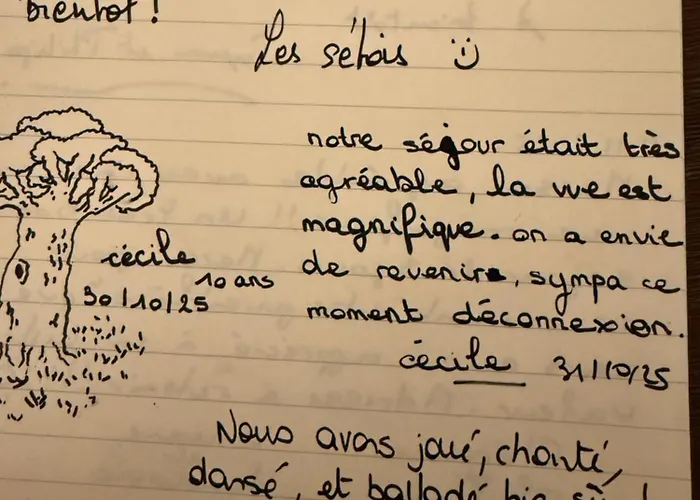 bientôt !
Les sétois :)
notre séjour était très
agréable, la vue est
magnifique. on a envie
de revenir, sympa ce
moment déconnexion.
cécile 31/10/25
cécile
10 ans
30/10/25
Nous avons joué, chanté,
dansé, et balladé